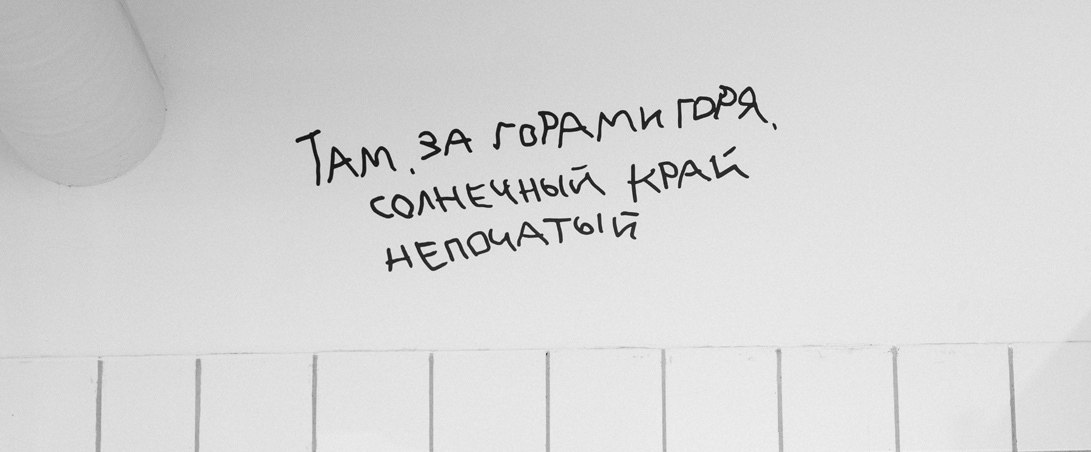 Там, за горами горя,
солнечный край
непочатый